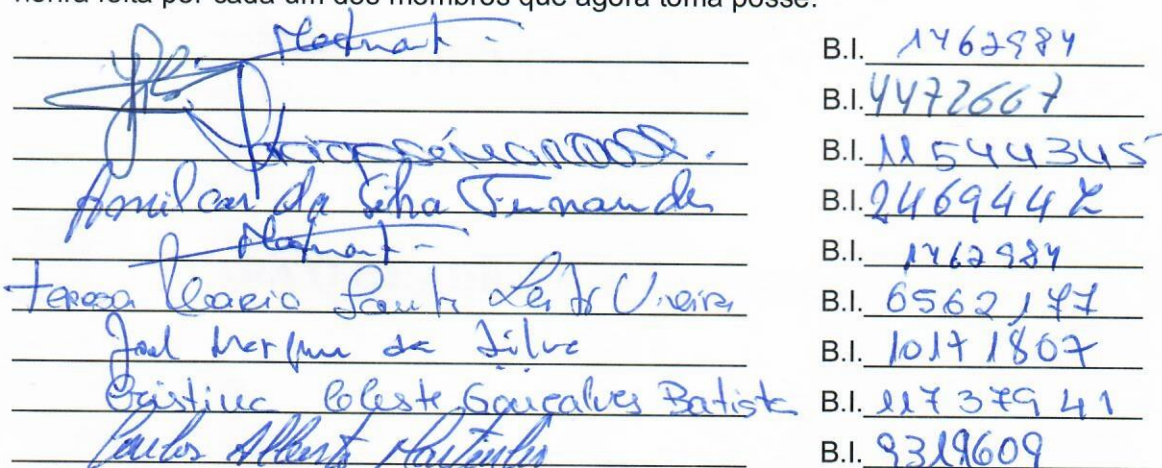 feita por cada um dos membros que agora toma posse.
B.I. 1462984
B.I. 4472667
B.I. 11544345
Amilcar da Silva Fernandes B.I. 2469442
B.I. 1462984
Teresa Maria Santos Leite Vieira B.I. 6562177
José Marques da Silva B.I. 10171807
Cristina Celeste Gonçalves Batista B.I. 11737941
Carlos Alberto Martinho B.I. 9319609